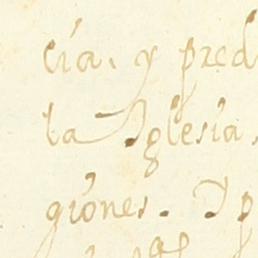 cía. y pred
la Iglesia.
giones. Y p